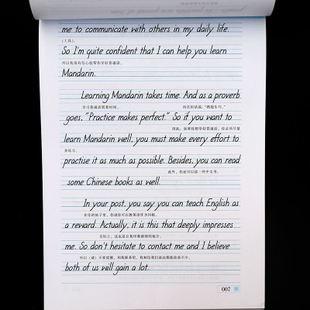 me to communicate with others in my daily life.
So I'm quite confident that I can help you learn
Mandarin.
Learning Mandarin takes time. And as a proverb
goes, "Practice makes perfect." So if you want to
learn Mandarin well, you must make every effort to
practise it as much as possible. Besides, you can read
some Chinese books as well.
In your post, you say you can teach English as
a reward. Actually, it is this that deeply impresses
me. So don't hesitate to contact me and I believe
both of us will gain a lot.
007